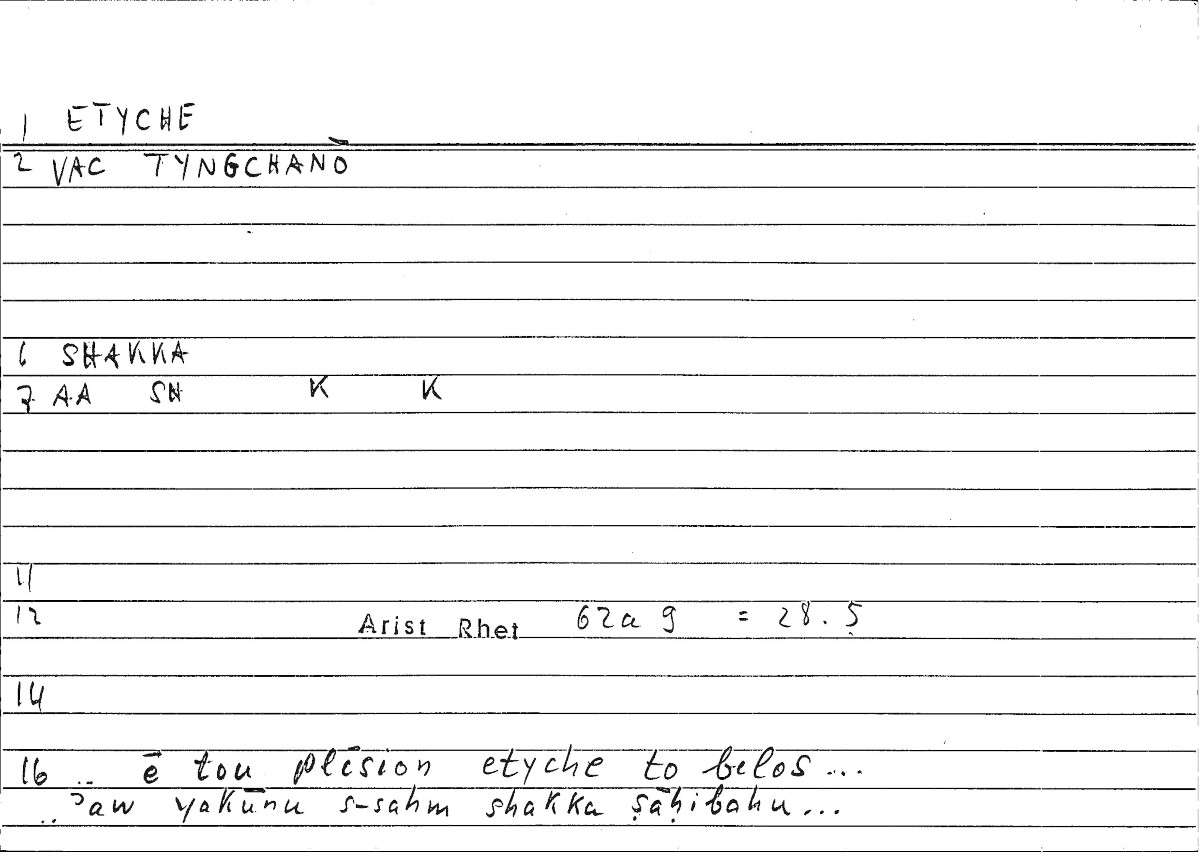 1 ETYCHE
2 VAC TYNGCHANŌ
6 SHAKKA
7 AA SH K K
11
12 Arist Rhet 62a 9 = 28.5
14
16 .. ē tou plēsion etyche to belos...
.. ʾaw yakūnu s-sahm shakka ṣāḥibahu...